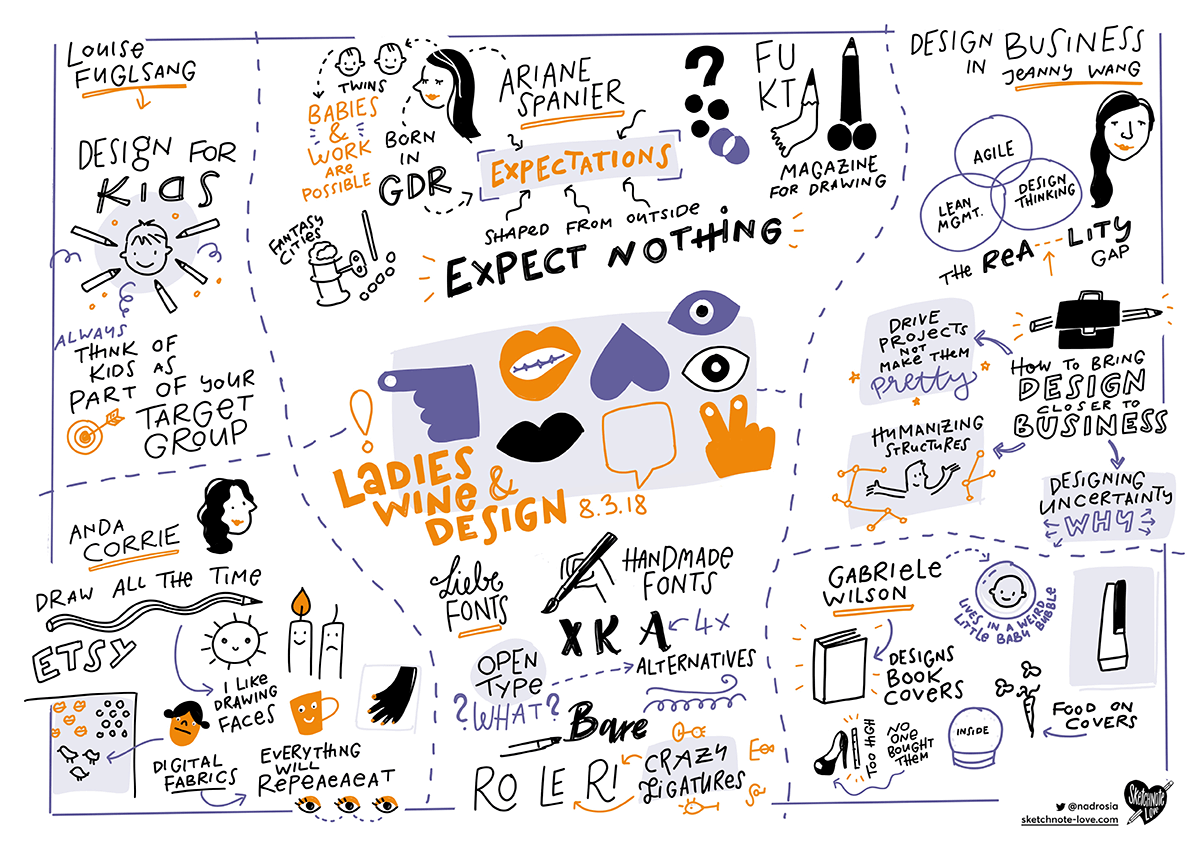 LOUISE
FUGLSANG
DESIGN FOR
KIDS
ALWAYS
THINK OF
KIDS AS
PART OF YOUR
TARGET
GROUP
TWINS
BABIES
&
WORK
ARE
POSSIBLE
BORN
IN
GDR
ARIANE
SPANIER
EXPECTATIONS
SHAPED FROM OUTSIDE
EXPECT NOTHING
FANTASY
CITIES
?
FU
KT
MAGAZINE
FOR DRAWING
DESIGN
IN
BUSINESS
JEANNY WANG
AGILE
LEAN
MGMT.
DESIGN
THINKING
THE REA---LITY
GAP
HOW TO BRING
DESIGN
CLOSER TO
BUSINESS
DRIVE
PROJECTS
NOT
MAKE THEM
PRETTY
HUMANIZING
STRUCTURES
DESIGNING
UNCERTAINTY
WHY
!
LADIES
WINE &
DESIGN 8.3.18
ANDA
CORRIE
DRAW ALL THE TIME
ETSY
I LIKE
DRAWING
FACES
DIGITAL
FABRICS
EVERYTHING
WILL
REPEAEAEAT
Liebe
FONTS
HANDMADE
FONTS
X K A
4X
ALTERNATIVES
OPEN
TYPE
?WHAT?
Bare
RO LE R!
CRAZY
LIGATURES
GABRIELE
WILSON
LIVES IN A WEIRD
LITTLE BABY BUBBLE
DESIGNS
BOOK
COVERS
TOO HIGH
NO
ONE
BOUGHT
THEM
INSIDE
FOOD ON
COVERS
@nadrosia
sketchnote-love.com
SKETCHNOTE
LOVE